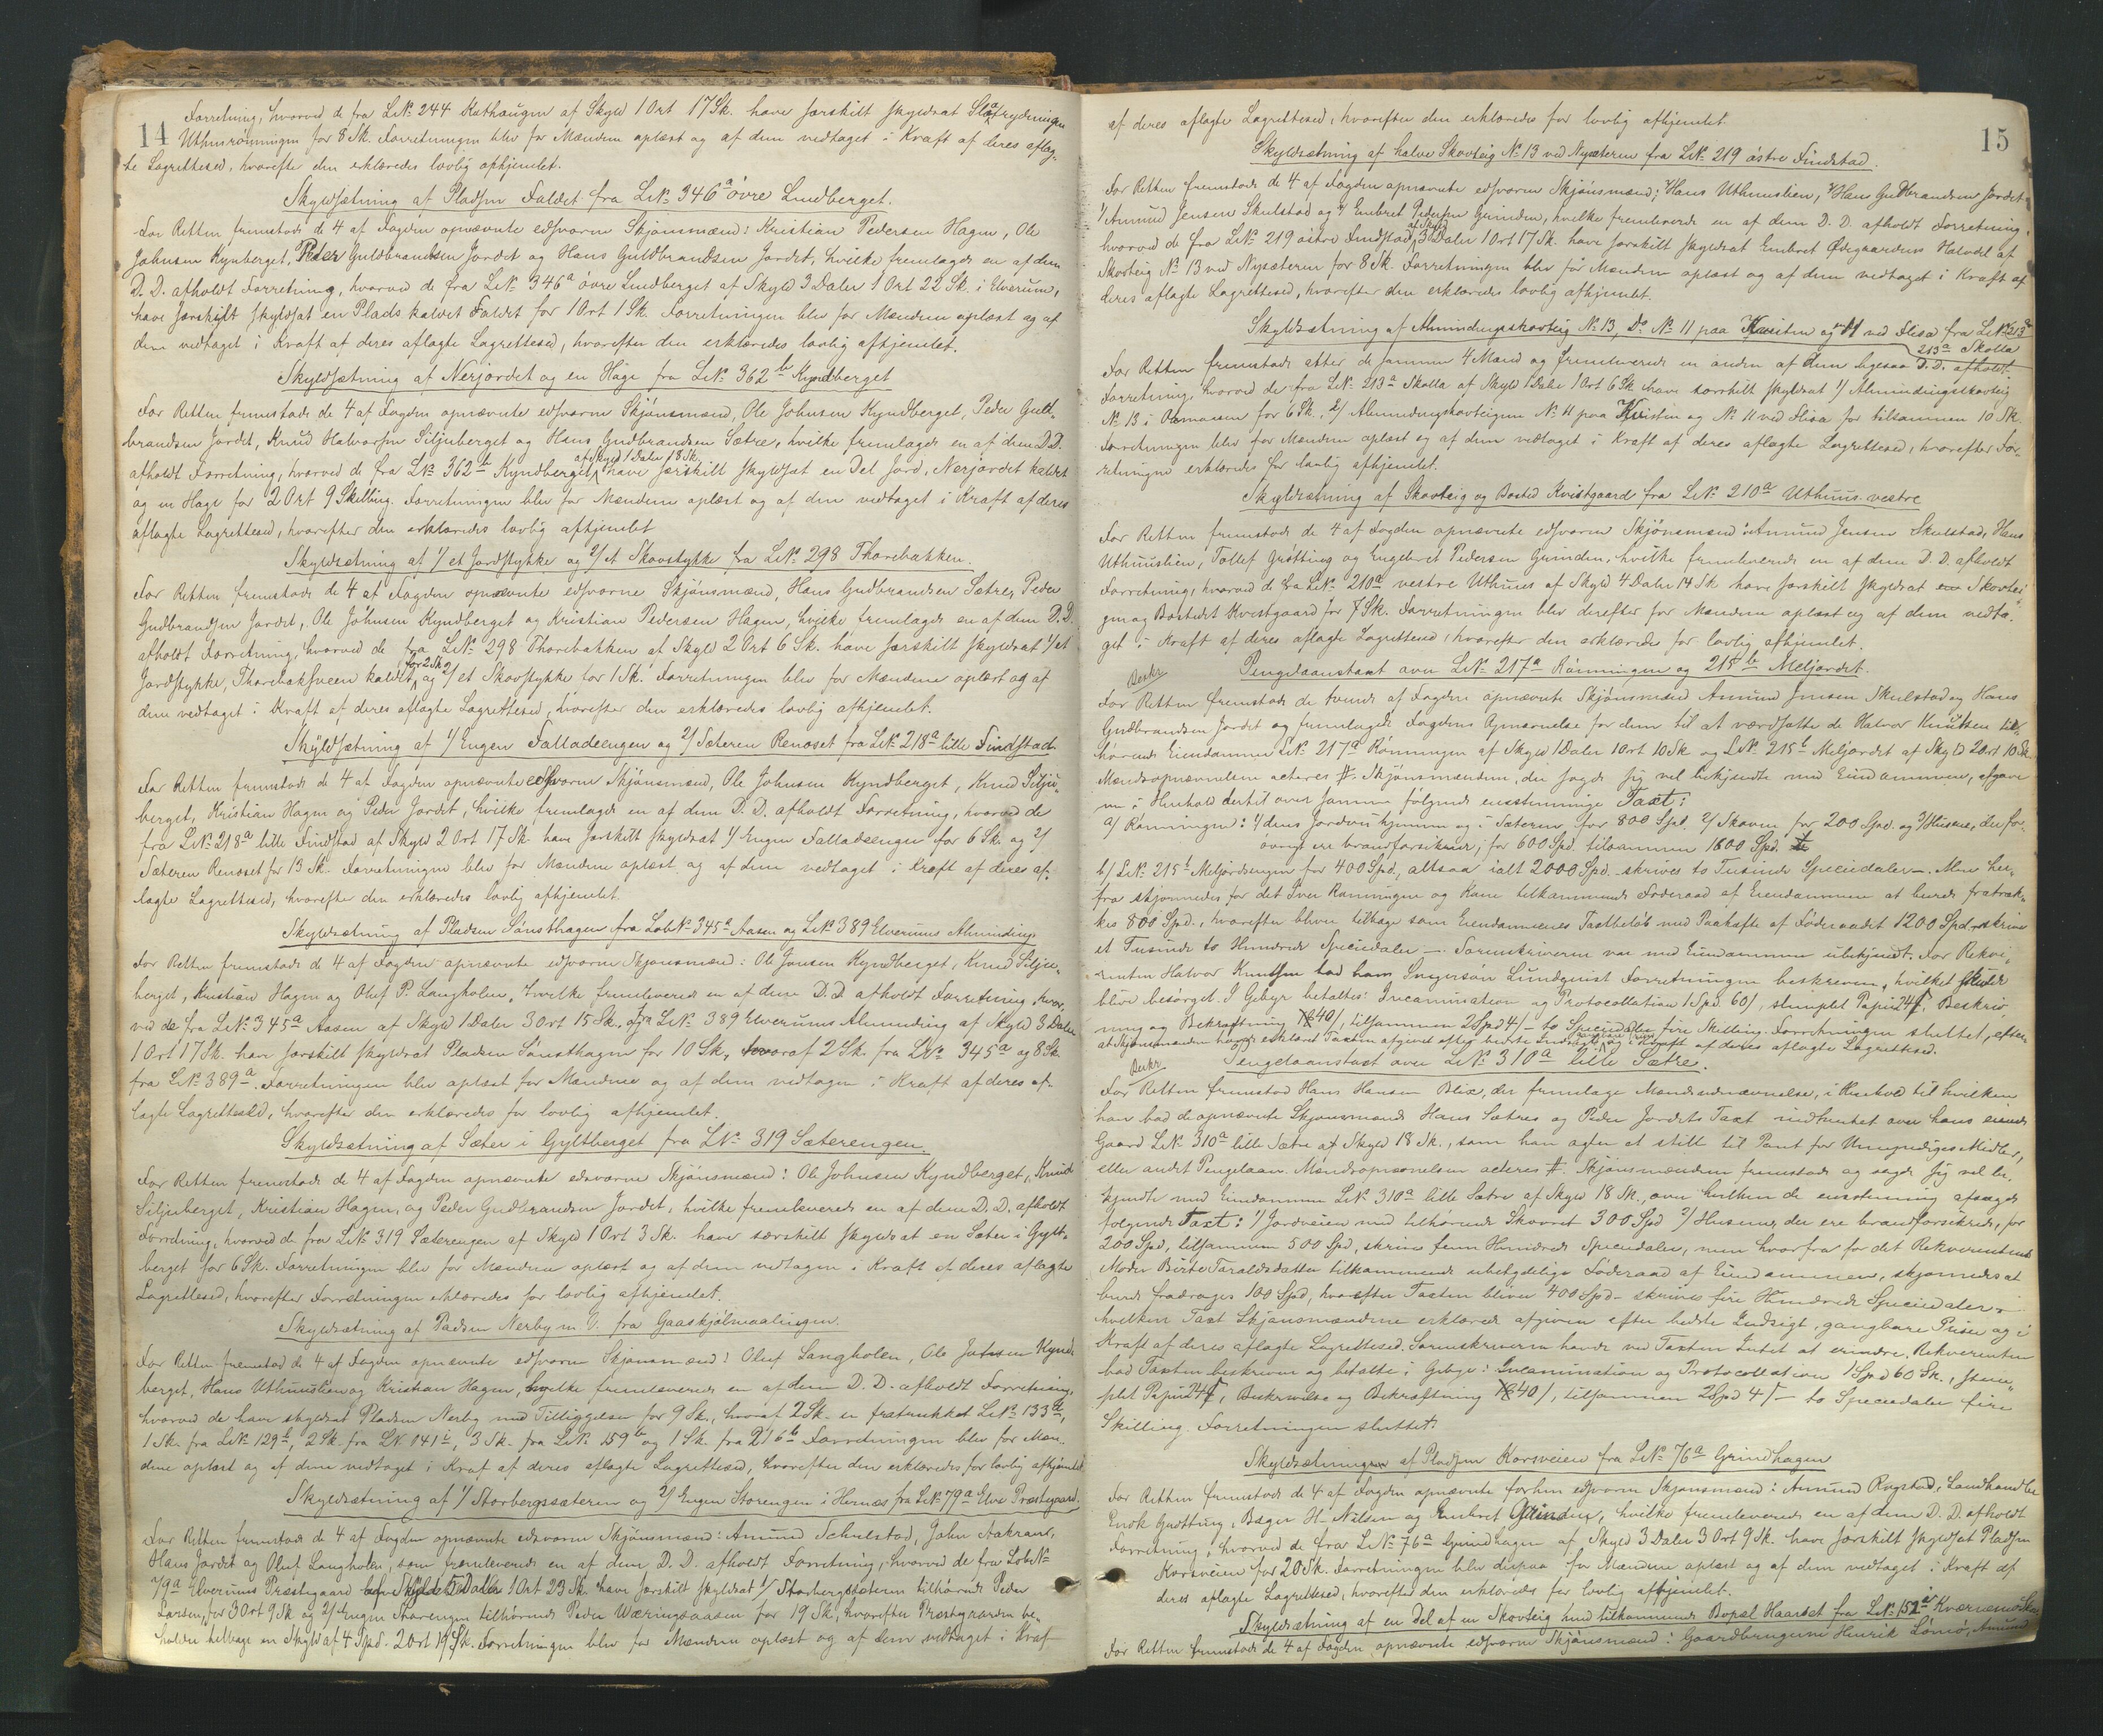 14
Forretning, hvorved de fra LNo 244 Kathaugen af Skyld 1 Ort 17 Sk. have særskilt skyldsat Slaatrydningen
Uthusrønningen for 8 Sk. Forretningen blev for Mændene oplæst og af dem vedtaget i Kraft af deres aflag-
te Lagrettesed, hvorefter den erklæredes lovlig afhjemlet.
Skyldsætning af Pladsen Faldet fra LNo 346a øvre Lindberget.
For Retten fremstode de 4 af Fogden opnævnte edsvorne Skjønsmænd: Kristian Pedersen Hagen, Ole
Johnsen Kynberget, Peder Guldbrandsen Jordet og Hans Guldbrandsen Jordet, hvilke fremlagde en af dem
D. D. afholdt Forretning, hvorved de fra LNo 346a øvre Lindberget af Skyld 3 Daler 1 Ort 22 Sk. i Elverum,
have særskilt skyldsat en Plads kaldet Faldet for 1 Ort 1 Sk. Forretningen blev for Mændene oplæst og af
dem vedtaget i Kraft af deres aflagte Lagrettesed, hvorefter den erklæredes lovlig afhjemlet.
Skyldsætning af Nerjordet og en Hage fra LNo 362b Kyndberget
For Retten fremstode de 4 af Fogden opnævnte edsvorne Skjønsmænd, Ole Johnsen Kyndberget, Peder Guld-
brandsen Jordet, Knud Halvorsen Siljuberget og Hans Gudbrandsen Sætre, hvilke fremlagde en af dem D.D.
afholdt Forretning, hvorved de fra LNo 362b Kyndberget af Skyld 1 Daler 18 Sk. have særskilt skyldsat en Del Jord, Nerjordet kaldet
og en Hage for 2 Ort 9 Skilling. Forretningen blev for Mændene oplæst og af dem vedtaget i Kraft af deres
aflagte Lagrettesed, hvorefter den erklæredes lovlig afhjemlet
Skyldsætning af 1/ et Jordstykke og 2/ et Skovstykke fra LNo 298 Thorebakken.
For Retten fremstode de 4 af Fogden opnævnte edsvorne Skjønsmænd, Hans Gudbrandsen Sætre, Peder
Gudbrandsen Jordet, Ole Johnsen Kyndberget og Kristian Pedersen Hagen, hvilke fremlagde en af dem D.D.
afholdt Forretning, hvorved de fra LNo 298 Thorebakken af Skyld 2 Ort 6 Sk. have særskilt skyldsat 1/ et
Jordstykke, Thorebaksveen kaldet, for 2 Sk. og 2/ et Skovstykke for 1 Sk. Forretningen blev for Mændene oplæst og af
dem vedtaget i Kraft af deres aflagte Lagrettesed, hvorefter den erklæredes lovlig afhjemlet.
Skyldsætning af 1/ Engen Falladeengen og 2/ Sæteren Renoset fra LNo 218a lille Findstad
For Retten fremstode de 4 af Fogden opnævnte edsvorne Skjønsmænd, Ole Johnsen Kyndberget, Knud Silju-
berget, Kristian Hagen og Peder Jordet, hvilke fremlagde en af dem D. D. afholdt Forretning, hvorved de
fra LNo 218a lille Findstad af Skyld 2 Ort 17 Sk. have særskilt skyldsat 1/ Engen Falladeengen for 6 Sk. og 2/
Sæteren Renoset for 13 Sk. Forretningen blev for Mændene oplæst og af dem vedtaget i Kraft af deres af-
lagte Lagrettesed, hvorefter den erklæredes lovlig afhjemlet.
Skyldsætning af Pladsen Sønsthagen fra LøbNo 345a Aasen og LNo 389 Elverums Alminding
For Retten fremstode de 4 af Fogden opnævnte edsvorne Skjønsmænd: Ole Jonsen Kyndberget, Knud Silju-
berget, Kristian Hagen og Oluf P. Langholen, hvilke fremleverede en af dem D. D. afholdt Forretning hvor-
ved de fra LNo 345a Aasen af Skyld 1 Daler 3 Ort 15 Sk. og fra LNo 389 Elverums Alminding af Skyld 3 Daler
1 Ort 17 Sk. have særskilt skyldsat Pladsen Sønsthagen for 10 Sk., hvoraf 2 Sk. fra LNo 345a og 8 Sk.
fra LNo 389a. Forretningen blev oplæst for Mændene og af dem vedtagen i Kraft af deres af-
lagte Lagrettesed, hvorefter den erklæredes for lovlig afhjemlet.
Skyldsætning af Sæter i Gyltberget fra LNo 319 Sæterengen.
For Retten fremstode de 4 af Fogden opnævnte edsvorne Skjønsmænd: Ole Johnsen Kyndberget, Knud
Siljuberget, Kristian Hagen, og Peder Gudbrandsen Jordet, hvilke fremleverede en af dem D. D. afholdt
Forretning, hvorved de fra LNo 319 Sæterengen af Skyld 1 Ort 3 Sk. have særskilt skyldsat en Sæter i Gylt-
berget for 6 Sk. Forretningen blev for Mændene oplæst og af dem vedtagen i Kraft af deres aflagte
Lagrettesed, hvorefter Forretningen erklæredes for lovlig afhjemlet.
Skyldsætning af Padsen Nerby m. V. fra Gaaskjølmaalingen.
For Retten fremstod de 4 af Fogden opnævnte edsvorne Skjønsmænd: Oluf Langholen, Ole Johnsen Kynd-
berget, Hans Uthuuslien og Kristian Hagen, hvilke fremleverede en af dem D. D. afholdt Forretning,
hvorved de have skyldsat Pladsen Nerby med Tilliggelse for 9 Sk., hvoraf 2 Sk. er fratrukket LNo 133a,
1 Sk. fra LNo 129b, 2 Sk. fra LN 141i, 3 Sk. fra LNo 159b og 1 Sk. fra 216b Forretningen blev for Mæn-
dene oplæst og af dem vedtaget i Kraf af deres aflagte Lagrettesed, hvorefter den erklæredes for lovlig afhjemlet
Skyldsætning af 1/ Storbergssæteren og 2/ Engen Storengen i Hernæs fra LNo 79a Elv. Præstegaard.
For Retten fremstode de 4 af Fogden opnævnte edsvorne Skjønsmænd: Amund Schulstad, John Aakrann,
Hans Jordet og Oluf Langholen, som fremleverede en af dem D. D. afholdt Forretning, hvorved de fra LøbNo
79a Elverums Præstegaard af Skyld 5 Daler 1 Ort 23 Sk. have særskilt skyldsat 1/ Storbergssæteren tilhørende Peder
Larsen, for 3 Ort 9 Sk og 2/ Engen Storengen tilhørende Peder Wæringsaasen for 19 Sk, hvorefter Præstegaarden be-
holder tilbage en Skyld af 4 Spd. 2 Ort 19 Sk. Forretningen blev for Mændene oplæst og af dem vedtaget i Kraf
15
af deres aflagte Lagrettesed, hvorefter den erklæredes for lovlig afhjemlet
Skyldsætning af halve Skovteig No 13 ved Nysæteren fra LNo 219 østre Findstad.
For Retten fremstode de 4 af Fogden opnævnte edsvorne Skjønsmænd; Hans Uthuuslien, Hans Gudbrandsen Jordet
Amund Jensen Skulstad og Embret Pedersen Grinden, hvilke fremleverede en af dem D. D. afholdt Forretning,
hvorved de fra LNo 219 østre Findstad af Skyld 3 Daler 1 Ort 17 Sk. have særskilt skyldsat Embret Ødegaardens Halvdel af
Skovteig No 13 ved Nysæteren for 8 Sk. Forretningen blev for Mændene oplæst og af dem vedtaget i Kraft af
deres aflagte Lagrettesed, hvorefter den erklæredes lovlig afhjemlet.
Skyldsætning af Almindingsskovteig No 13, Do No 11 paa Kvisten og 11 ved Flisa fra LNo 213a
213a Skolla
For Retten fremstode atter de samme 4 Mænd og fremleverede en anden af dem ligesaa D. D. afholdt
Forretning, hvorved de fra LNo 213a Skolla af Skyld 1 Daler 1 Ort 6 Sk have særskilt skyldsat 1/ Almindingsskovteig
No 13 i Osmaasen for 6 Sk., 2/ Almindingsskovteigene No 11 paa Kvisten og No 11 ved Flisa for tilsammen 10 Sk.
Forretningen blev for Mændene oplæst og af dem vedtaget i Kraft af deres aflagte Lagrettesed, hvorefter For-
retningen erklæredes for lovlig afhjemlet.
Skyldsætning af Skovteig og Bosted Kvistgaard fra LNo 210a Uthuus vestre
For Retten fremstode de 4 af Fogden opnævnte edsvorne Skjønsmænd: Amund Jensen Skulstad, Hans
Uthuuslien, Tollef Grøtting og Engebret Pedersen Grinden, hvilke fremleverede en af dem D. D. afholdt
Forretning, hvorved de fra LNo 210a vestre Uthuus af Skyld 4 Daler 14 Sk have særskilt skyldsat en Skovtei-
gen og Bostedet Kvistgaard for 7 Sk. Forretningen blev derefter for Mændene oplæst og af dem vedta-
get i Kraft af deres aflagte Lagrettesed, hvorefter den erklæredes for lovlig afhjemlet.
Beskr
Pengelaanstaxt over LNo 217a Rønningen og 215b Meljordet.
For Retten fremstode de tvende af Fogden opnævnte Skjønsmænd Amund Jensen Skulstad og Hans
Gudbrandsen Jordet og fremlagde Fogdens Opnævnelse for dem til at værdsætte de Halvor Knutsen til-
hørende Eiendomme LNo 217a Rønningen af Skyld 1 Daler 1 Ort 10 Sk og LNo 215b Meljordet af Skyld 2 Ort 10 Sk.
Mandsopnævnelsen acteres #. Skjønsmændene, der sagde sig vel bekjendte med Eiendommene, afgave
nu i Henhold dertil over samme følgende eensstemmige Taxt:
a/ Rønningen: 1/ dens Jordvei hjemme og i Sæteren for 800 Spd. 2/ Skoven for 200 Spd. og 3/ Husene, der for-
øvrigt ere brandforsikrede, for 600 Spd. tilsammen 1600 Spd.
b/ LNo 215b Meljordsengen for 400 Spd., altsaa ialt 2000 Spd. skrives to Tusinde Speciedaler. Men her-
fra skjønnedes for det Iver Rønningen og Kone tilkommende Føderaad af Eiendommene at burde fratræk-
kes 800 Spd., hvorefter bliver tilbage som Eiendommenes Taxtbeløb med Paahæfte af Føderaadet 1200 Spd., skriver
et Tusinde to Hundrede Speciedaler. Sorenskriveren var med Eiendommene ubekjendt. For Rekvi-
renten Halvor Knutsen bad hans Svigersøn Lundquist Forretningen beskreven, hvilket skulde
blive besørget. I Gebyr betaltes: Incamination og Protocollation 1 Spd 60/, stemplet Papir 24/, Beskriv-
ning og Bekræftning 40/, tilsammen 2 Spd 4/ - to Speciedaler fire Skilling. Forretningen sluttet, efter
at Skjønsmændene havde erklæret Taxten afgivet efter bedste Indsigt, og i Kraft af deres aflagte Lagrettesed.
Beskr
Pengelaanstaxt over LNo 310a lille Sætre.
For Retten fremstod Hans Hansen Blix, der fremlage Mændsudnævnelse, i Henhold til hvilken
han bad de opnævnte Skjønsmænds Hans Sætres og Peder Jordets Taxt indhentet over hans eiende
Gaard LNo 310a lille Sætre af Skyld 18 Sk., som han agter at stille til Pant for Umyndiges Midler,
eller andet Pengelaan. Mændsopnævnelsen acteres #. Skjønsmændene fremstode og sagde sig vel be-
kjendte med Eiendommen LNo 310a lille Sætre af Skyld 18 Sk., over hvilken de eenstemmig afsagde
følgende Taxt: 1/ Jordveien med tilhørende Skovret 300 Spd 2/ Husene, der ere brandforsikrede, for
200 Spd, tilsammen 500 Spd, skrives fem Hundrede Speciedaler, men hvorfra for det Rekvirentens
Moder Birthe Taraldsdatter tilkommende ubetydelige Føderaad af Eiendommen, skjønnedes at
burde fradrages 100 Spd, hvorefter Taxten bliver 400 Spd - skrives fire Hundrede Speciedaler -
hvilken Taxt Skjønsmændene erklærede afgiven efter bedste Indsigt, gangbare Priser og i
Kraft af deres aflagte Lagrettesed. Sorenskriveren havde ved Taxten Intet at erindre, Rekvirenten
bad Taxten beskreven og betalte i Gebyr: Incamination og Protocollation 1 Spd 60 Sk., stem-
plet Papir 24/, Beskrivelse og Bekræftning 40/, tilsammen 2 Spd 4/ - to Speciedaler fire
Skilling. Forretningen sluttet.
Skyldsætningen af Pladsen Korsveien fra LNo 76a Grindhagen
For Retten fremstode de 4 af Fogden opnævnte forhen edsvorne Skjønsmænd: Amund Rogstad, Landhandler
Enok Grøtting, Bager H. Nilsen og Embret Grinden, hvilke fremleverede en af dem D. D. afholdt
Forretning, hvorved de fra LNo 76a Grindhagen af Skyld 3 Daler 3 Ort 9 Sk. have særskilt skyldsat Pladsen
Korsveien for 20 Sk. Forretningen blev derpaa for Mændene oplæst og af dem vedtaget i Kraft af
deres aflagte Lagrettesed, hvorefter den erklæredes for lovlig afhjemlet.
Skyldsætning af en Del af en Skovteig med tilkommende Bopæl Haarset fra LNo 152a Kværnemo
For Retten fremstode de 4 af Fogden opnævnte edsvorne Skjønsmænd: Gaardbrugerne Henrik Lømo, Amund